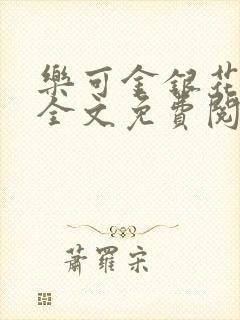 樂可金銀花
全文免費閱
蕭羅宋